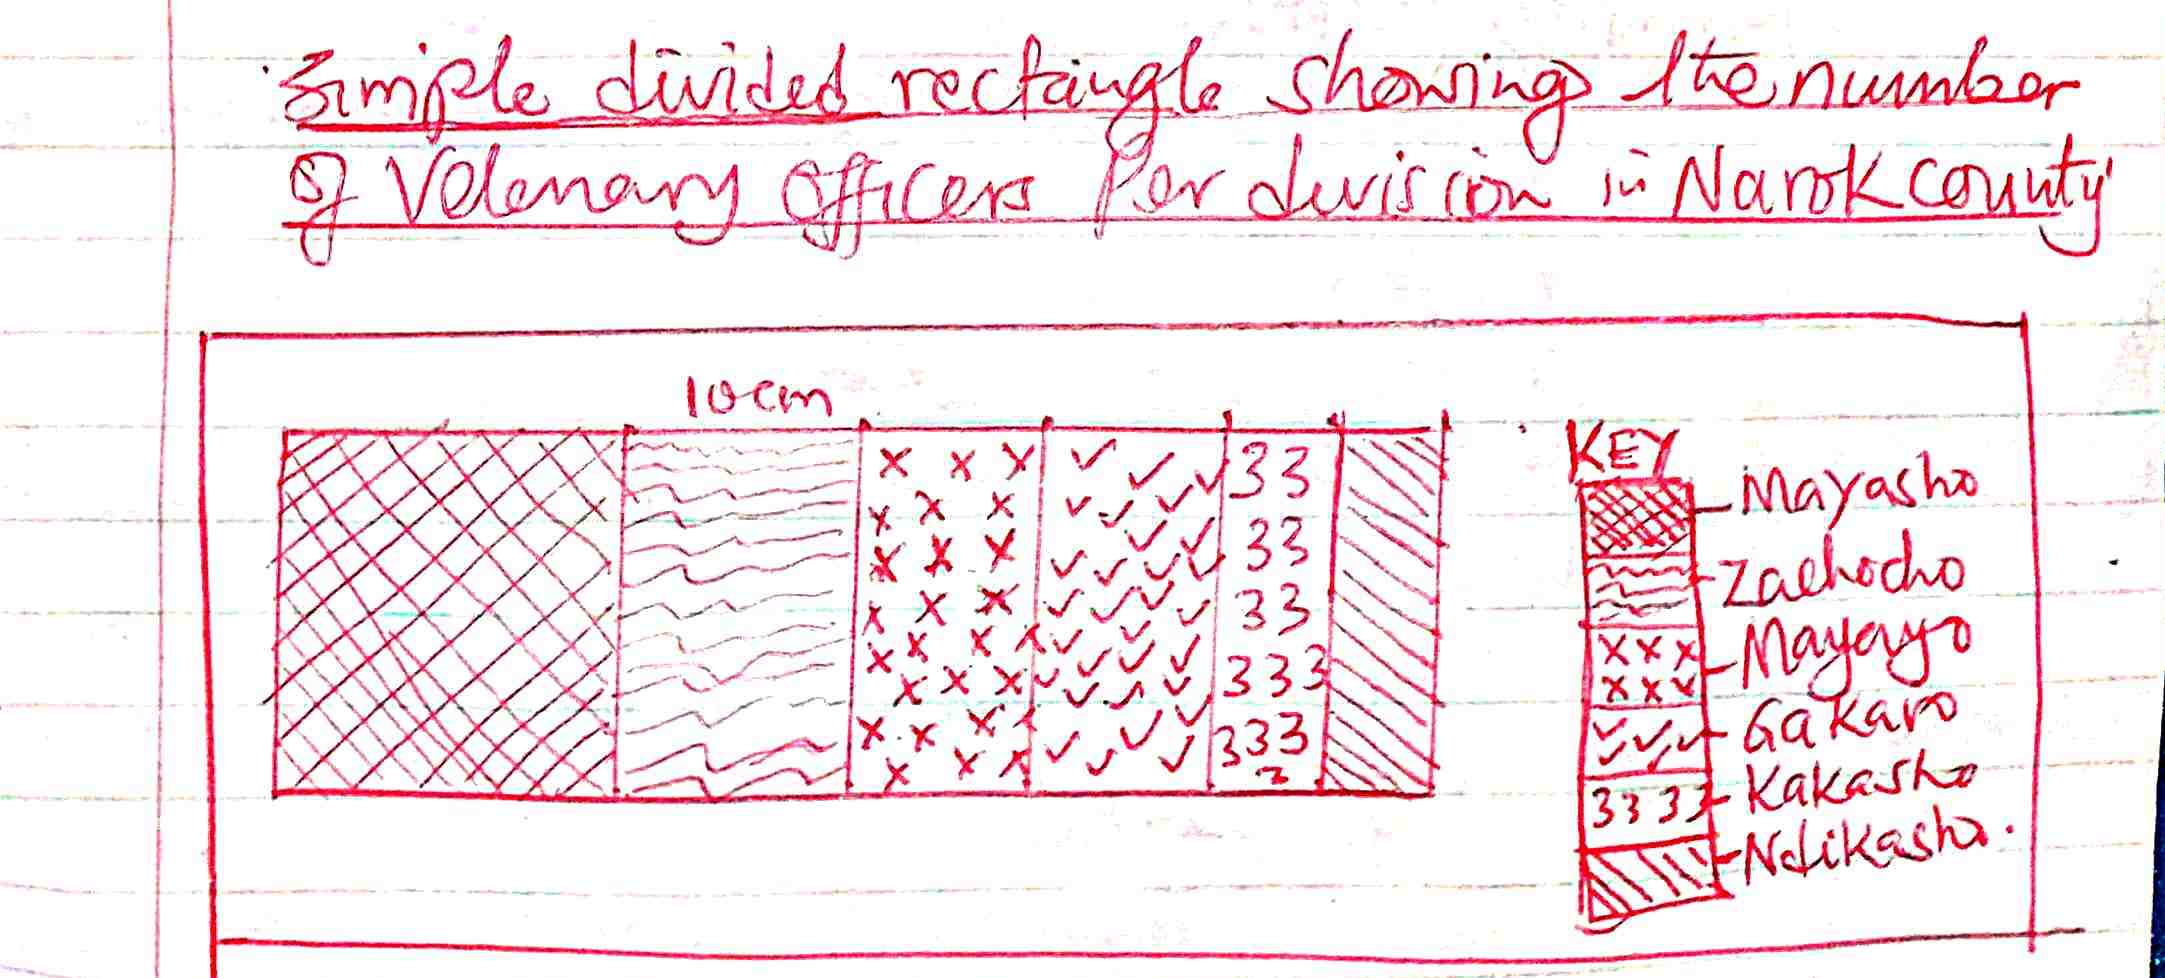 Simple divided rectangle showing the number
of Vetenary officers per division in Narok county
10cm
KEY
Mayasho
Zachocho
Mayayo
Gakaro
Kakasho
Ndikasha.